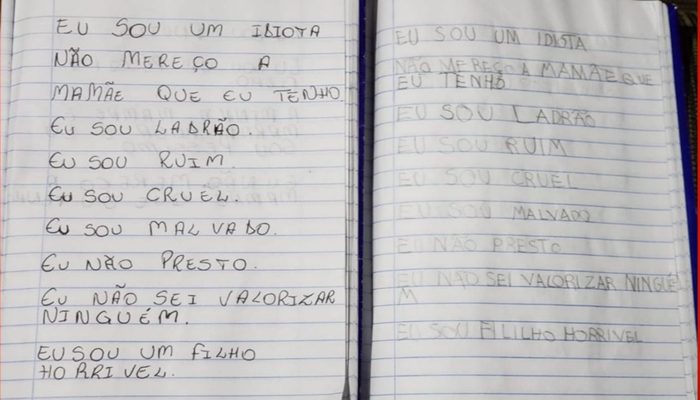 EU SOU UM IDIOTA
NÃO MEREÇO A
MAMÃE QUE EU TENHO.
EU SOU LADRÃO.
EU SOU RUIM.
EU SOU CRUEL.
EU SOU MALVADO.
EU NÃO PRESTO.
EU NÃO SEI VALORIZAR
NINGUÉM.
EU SOU UM FILHO
HORRIVEL.
EU SOU UM IDISTA
NÃO MEREÇO A MAMÃE QUE
EU TENHO
EU SOU LADRÃO
EU SOU RUIM
EU SOU CRUEL
EU SOU MALVADO
EU NÃO PRESTO
EU NÃO SEI VALORIZAR NINGUÉ
M
EU SOU FILILHO HORRIVEL